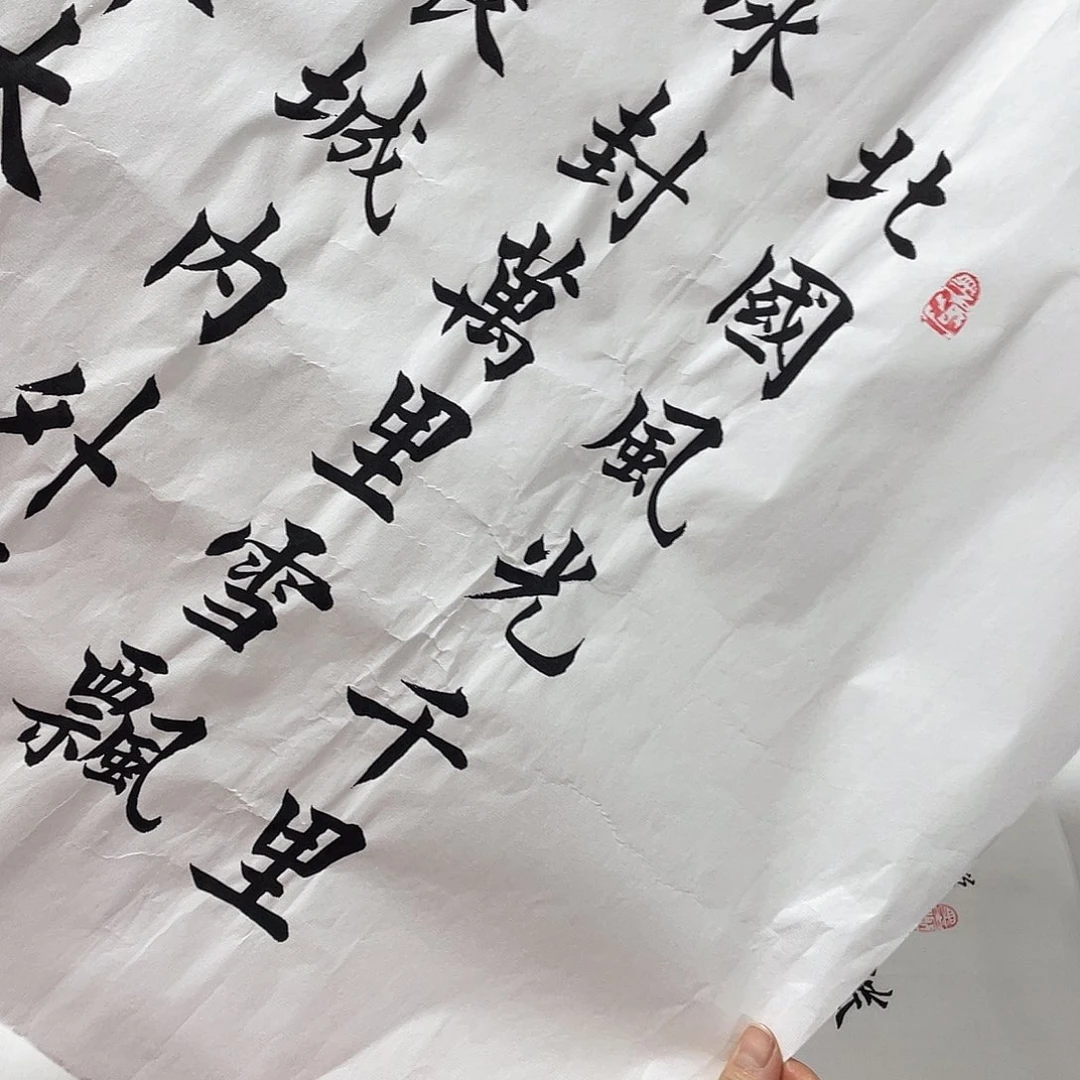 北國風光千里
冰封萬里雪飄
長城内外